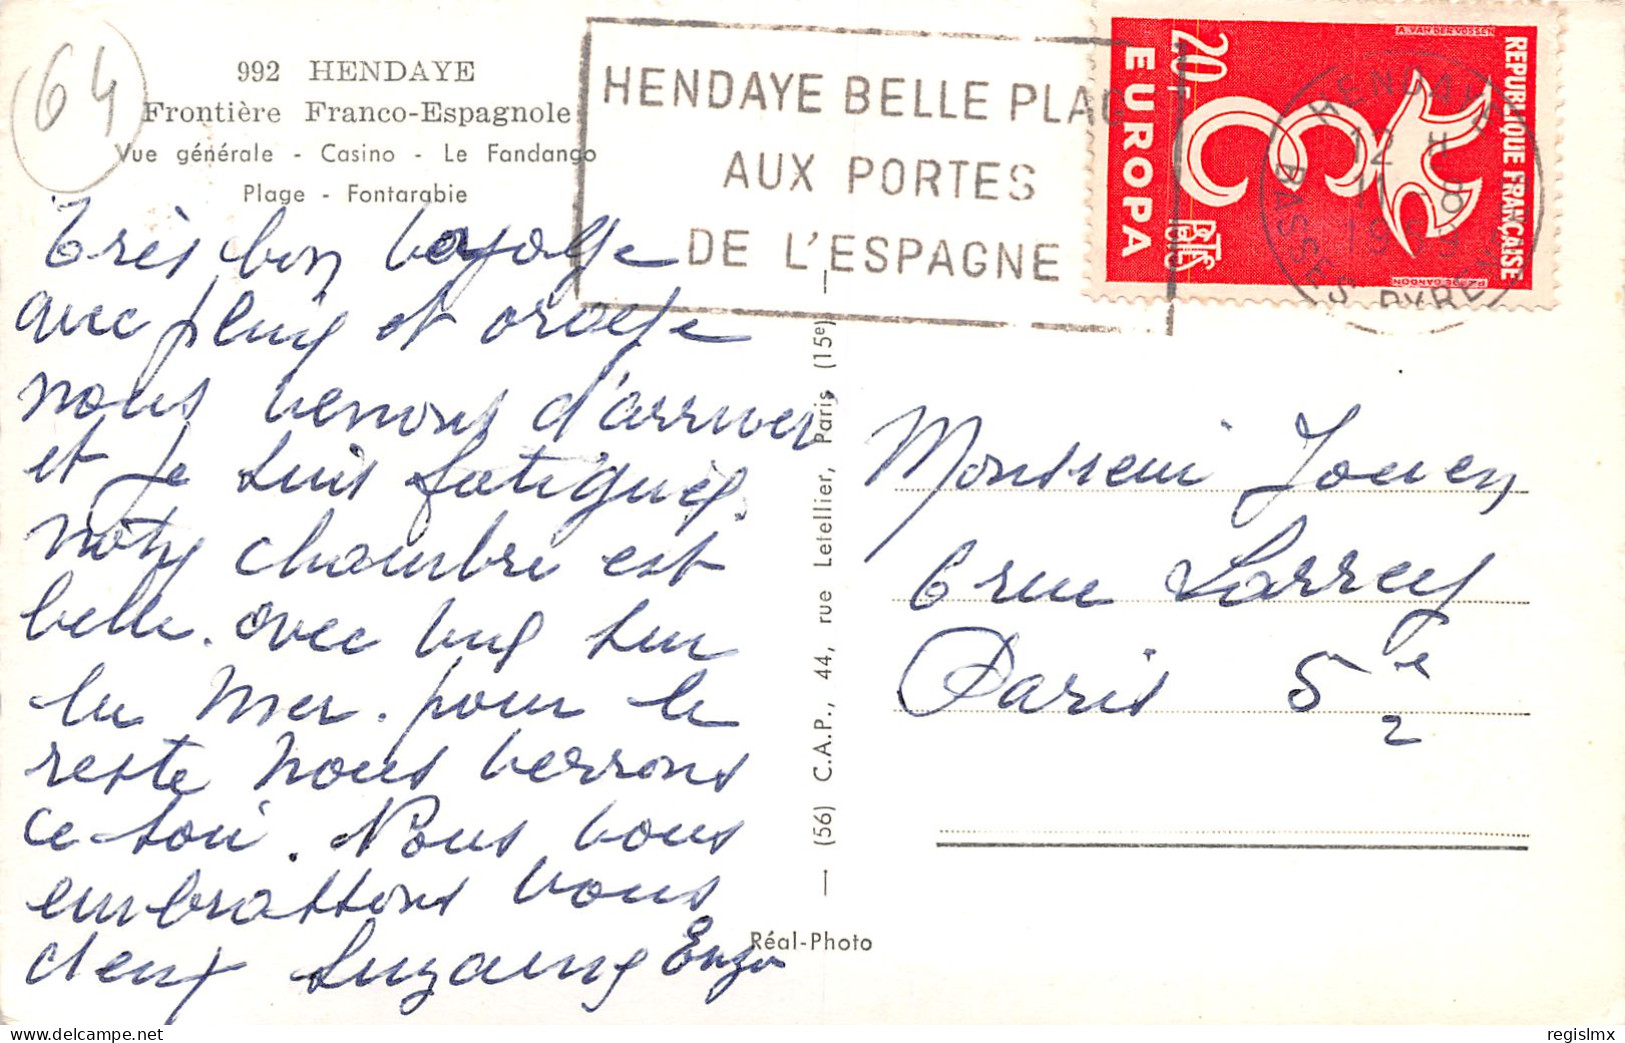 64
992 HENDAYE
Frontière Franco-Espagnole
Vue générale - Casino - Le Fandango
Plage - Fontarabie
HENDAYE BELLE PLAG
AUX PORTES
DE L'ESPAGNE
A. VAN DER VOSSEN
REPUBLIQUE FRANÇAISE
20F
EUROPA
POSTES
HENDAYE
12 H
11
BASSES PYRENEES
Très bon voyage
avec pluie et orage
nous venons d'arriver
et je suis fatiguée.
notre chambre est
belle. avec vue sur
la mer. pour le
reste nous verrons
ce soir. Nous vous
embrassons vous
deux Suzanne Enzo
Monsieur Jouen
6 rue Larrey
Paris 5e
2
— (56) C.A.P., 44, rue Letellier, Paris (15e) —
Réal-Photo
regislmx